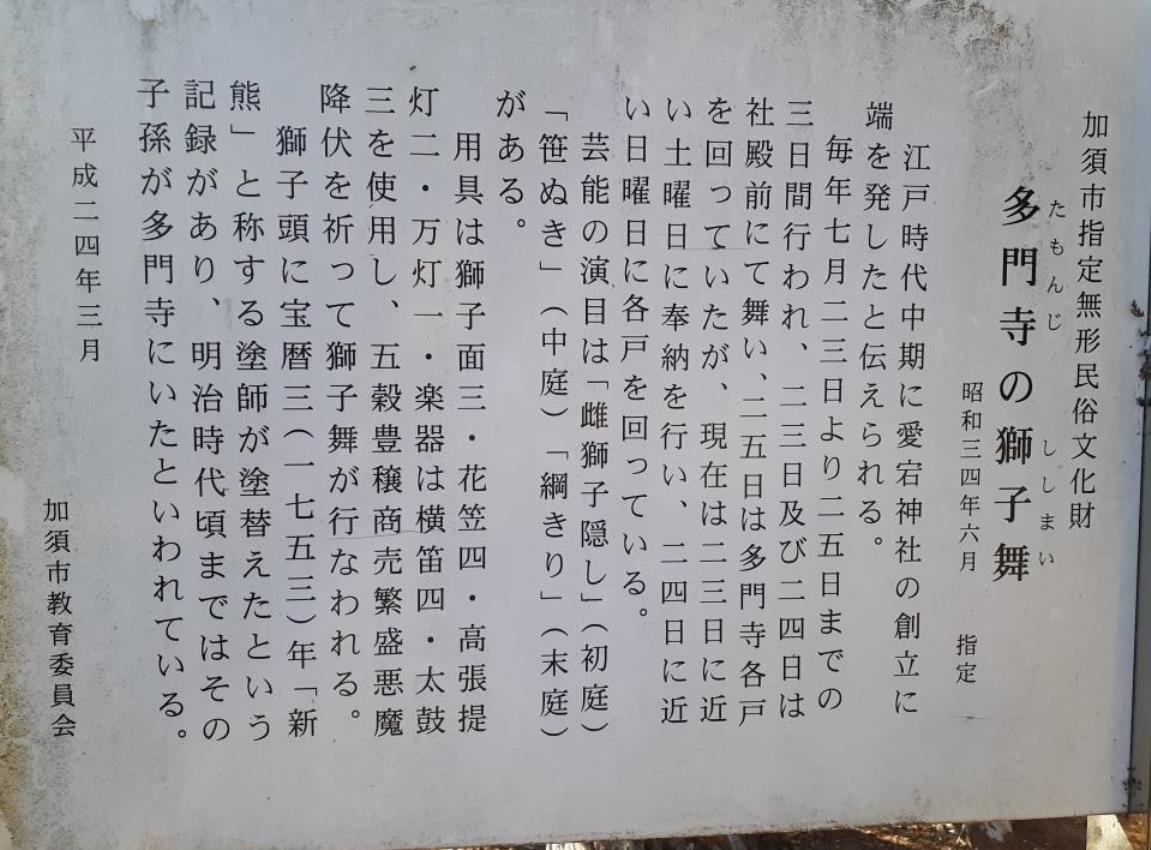 加須市指定無形民俗文化財
多門寺の獅子舞
たもんじ
ししまい
昭和三四年六月 指定
江戸時代中期に愛宕神社の創立に
端を発したと伝えられる。
毎年七月二三日より二五日までの
三日間行われ、二三日及び二四日は
社殿前にて舞い、二五日は多門寺各戸
を回っていたが、現在は二三日に近
い土曜日に奉納を行い、二四日に近
い日曜日に各戸を回っている。
芸能の演目は「雌獅子隠し」(初庭)
「笹ぬき」(中庭)「綱きり」(末庭)
がある。
用具は獅子面三・花笠四・高張提
灯二・万灯一・楽器は横笛四・太鼓
三を使用し、五穀豊穣商売繁盛悪魔
降伏を祈って獅子舞が行なわれる。
獅子頭に宝暦三(一七五三)年「新
熊」と称する塗師が塗替えたという
記録があり、明治時代頃まではその
子孫が多門寺にいたといわれている。
平成二四年三月
加須市教育委員会